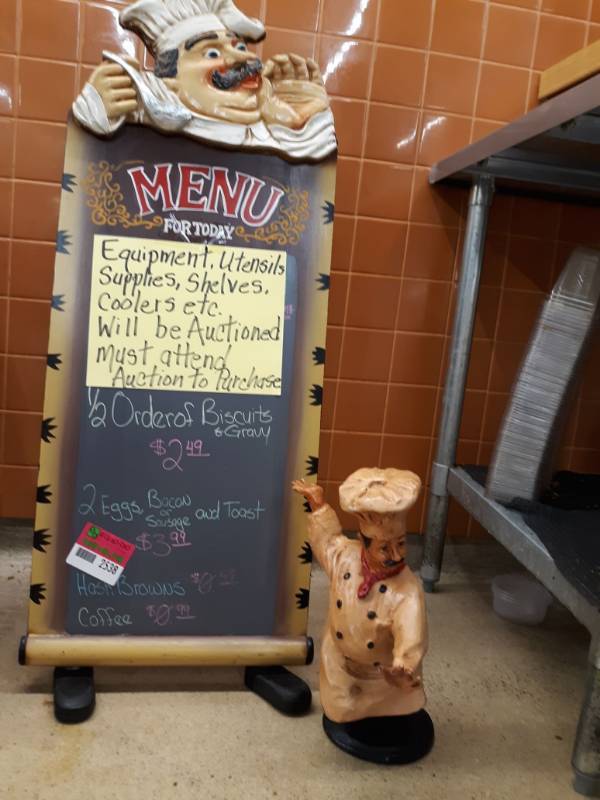 MENU
FOR TODAY
Equipment, Utensils
Supplies, Shelves,
Coolers etc.
Will be Auctioned
must attend
Auction to Purchase
1/2 Order of Biscuits
& Gravy
$2.49
2 Eggs, Bacon or Sausage and Toast
$3.99
2538
Hash Browns
Coffee $0.99